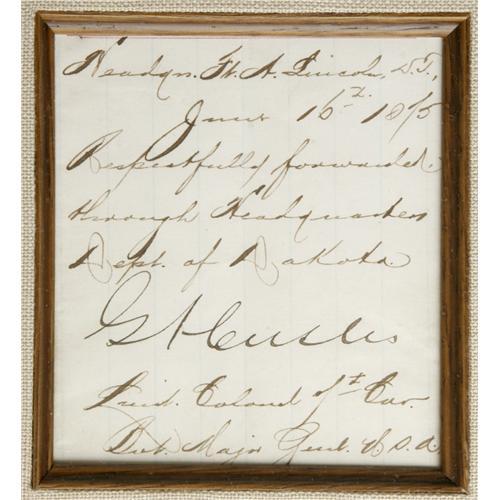 Headqrs. Ft. A. Lincoln, D.T.,
June 16th. 1875
Respectfully forwarded
through Headquarters
Dept. of Dakota.
G A Custer
Lieut. Colonel 7th Cav.
Bvt. Major Genl. U.S.A.